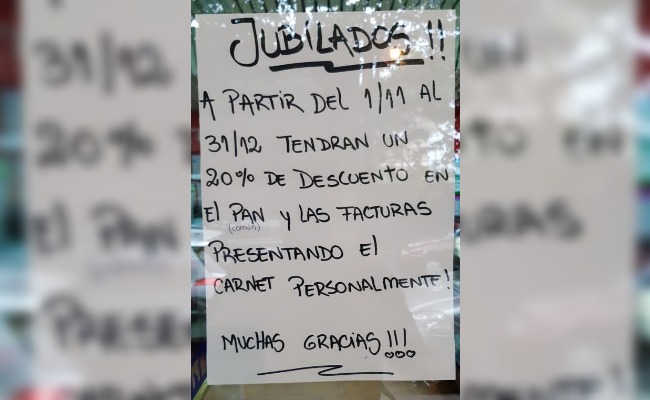 JUBILADOS!!
A PARTIR DEL 1/11 AL
31/12 TENDRAN UN
20% DE DESCUENTO EN
El PAN y LAS FACTURAS
(común)
PRESENTANDO El
CARNET PERSONALMENTE!
MUCHAS GRACIAS!!!